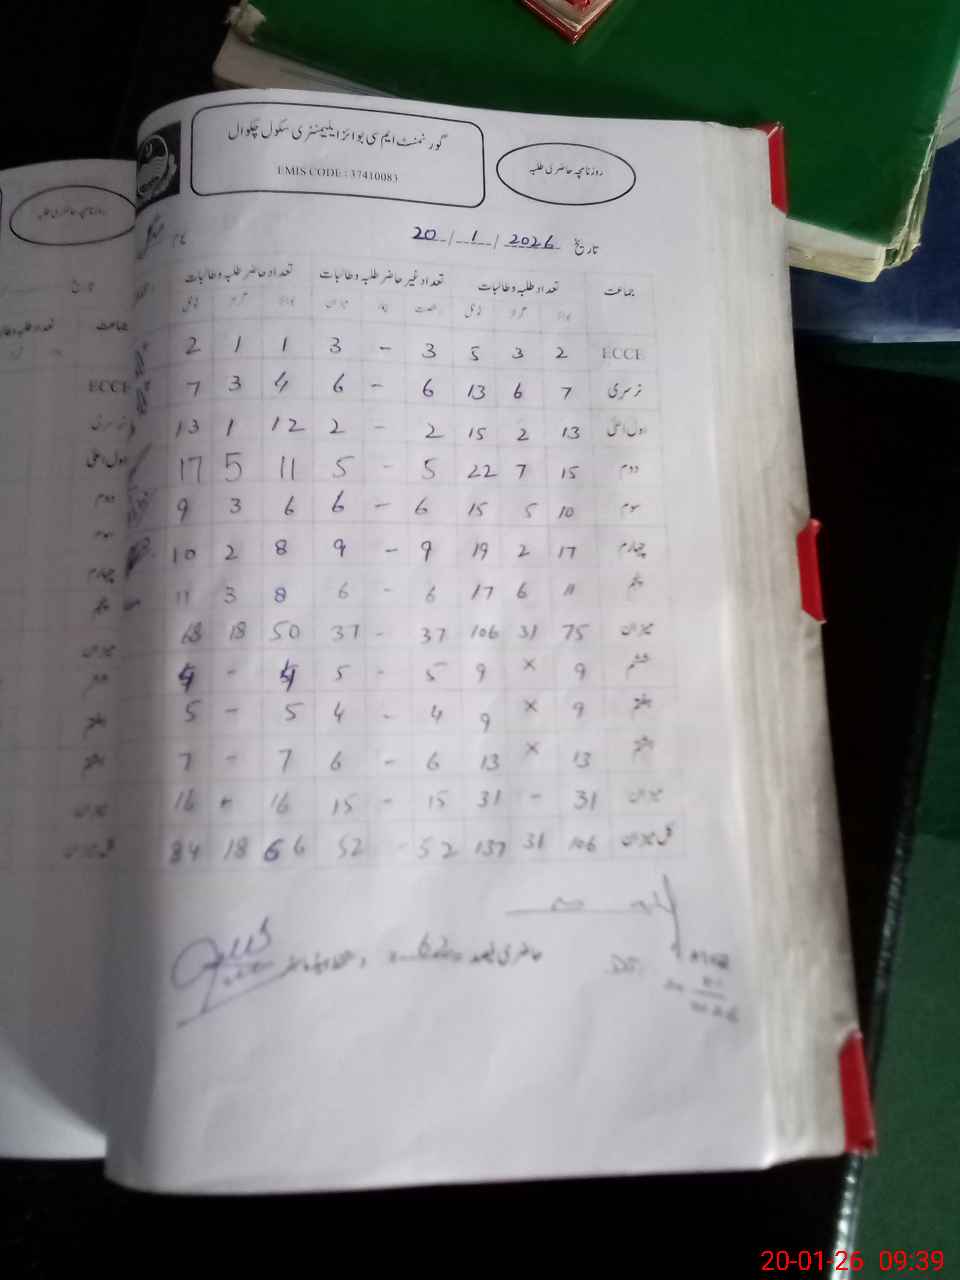 گورنمنٹ ایم سی بوائز ایلیمنٹری سکول چکوال
EMIS CODE : 37410083
روزنامچہ حاضری طلبہ
تاریخ 20 / 1 / 2026
جماعت تعداد طلبہ و طالبات تعداد غیر حاضر طلبہ و طالبات تعداد حاضر طلبہ و طالبات
بوائز گرلز ٹوٹل رخصت بیمار میزان بوائز گرلز ٹوٹل
ECCE 2 3 5 3 - 3 1 1 2
نرسری 7 6 13 6 - 6 4 3 7
اول اعلیٰ 13 2 15 2 - 2 12 1 13
دوم 15 7 22 5 - 5 11 5 17
سوم 10 5 15 6 - 6 6 3 9
چہارم 17 2 19 9 - 9 8 2 10
پنجم 11 6 17 6 - 6 8 3 11
میزان 75 31 106 37 - 37 50 18 68
ششم 9 × 9 5 - 5 4 - 4
ہفتم 9 × 9 4 - 4 5 - 5
ہشتم 13 × 13 6 - 6 7 - 7
میزان 31 - 31 15 - 15 16 - 16
کل میزان 106 31 137 52 - 52 66 18 84
حاضری فیصد
روزنامچہ حاضری طلبہ
تاریخ
جماعت
ECCE
نرسری
اول اعلیٰ
دوم
سوم
چہارم
پنجم
میزان
ششم
ہفتم
ہشتم
میزان
کل میزان
20-01-26 09:39